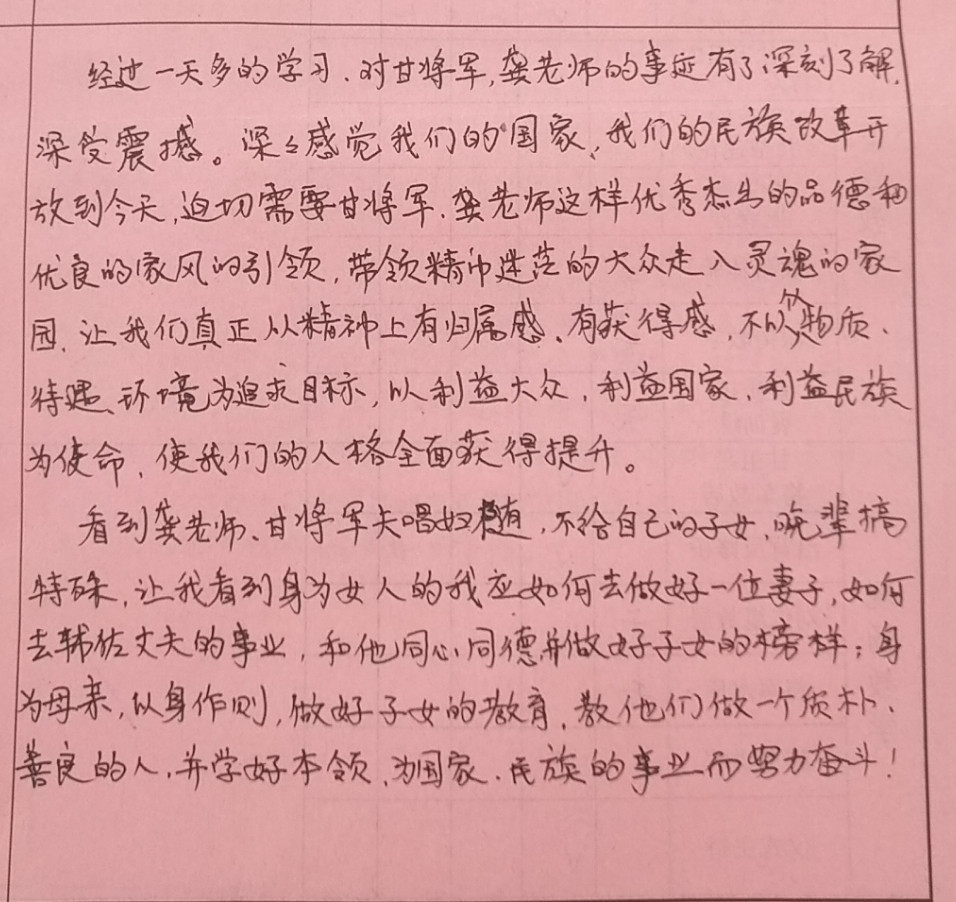 经过一天多的学习、对甘将军,龚老师的事迹有了深刻了解,
深受震撼。深々感觉我们的国家、我们的民族改革开
放到今天,迫切需要甘将军、龚老师这样优秀杰出的品德和
优良的家风的引领,带领精神迷茫的大众走入灵魂的家
园、让我们真正从精神上有归属感、有获得感,不以物质、
待遇、环境为追求目标,以利益大众,利益国家、利益民族
为使命,使我们的人格全面获得提升。
看到龚老师、甘将军夫唱妇随,不给自己的子女、晚辈搞
特殊,让我看到身为女人的我应如何去做好一位妻子,如何
去辅佐丈夫的事业,和他同心同德并做好子女的榜样;身
为母亲,以身作则,做好子女的教育,教他们做一个质朴、
善良的人,并学好本领,为国家、民族的事业而努力奋斗!